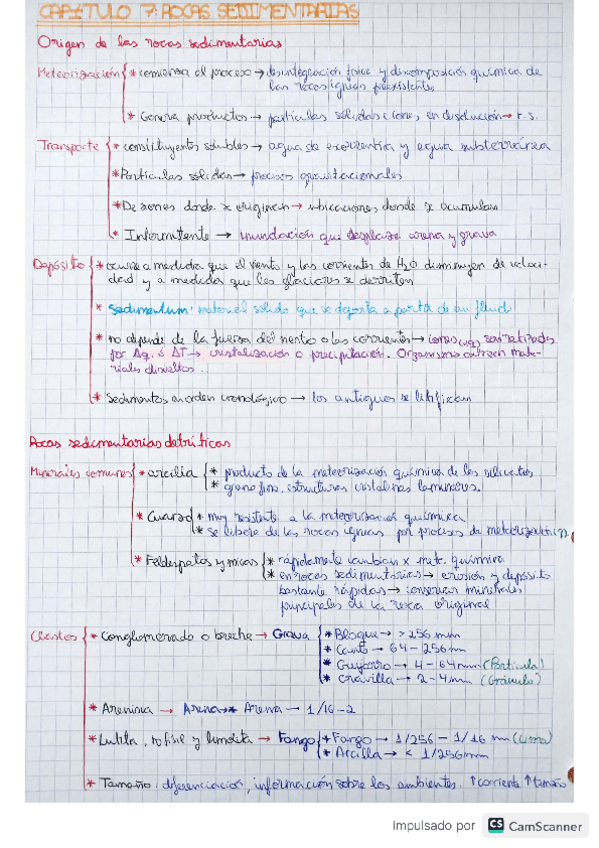 CAPÍTULO 7: ROCAS SEDIMENTARIAS
Origen de las rocas sedimentarias
Meteorización * comienza el proceso → desintegración física y descomposición química de
las rocas ígneas preexistentes
* Genera productos → partículas sólidas e iones en disolución → r.s.
Transporte * constituyentes solubles → agua de escorrentía y agua subterránea
* Partículas sólidas → procesos gravitacionales
* De zonas donde se originan → ubicaciones donde se acumulan
* Intermitente → inundación que desplaza arena y grava
Depósito * ocurre a medida que el viento y las corrientes de H2O disminuyen de veloci-
dad y a medida que los glaciares se derriten
* Sedimentum: material sólido que se deposita a partir de un fluid
* no depende de la fuerza del viento o las corrientes →
por Δq. ó ΔT → cristalización o precipitación. Organismos extraen mate-
riales disueltos.
* Sedimentos en orden cronológico → los antiguos se litifican
Rocas sedimentarias detríticas
Minerales comunes * arcilla * producto de la meteorización química de los silicatos
* grano fino, estructuras cristalinas laminares.
* Cuarzo * muy resistente a la meteorización química
* se libera de las rocas ígneas por procesos de meteorización
* Feldespatos y micas * rápidamente cambian x mete. química
* en rocas sedimentarias → erosión y depósito
bastante rápidas → conservar minerales
principales de la roca original
Clastos * Conglomerado o brecha → Grava * Bloque → > 256 mm
* Canto → 64 - 256 mm
* Guijarro → 4 - 64 mm (Partícula)
* Gravilla → 2 - 4 mm (Gránulo)
* Arenisca → Arena → * Arena → 1/16 - 2
* Lutita, y limolita → Fango * Fango → 1/256 - 1/16 mm (Limo)
* Arcilla → < 1/256 mm
* Tamaño: diferenciación, información sobre los ambientes. ↑corriente ↑tamaño
Impulsado por CS CamScanner